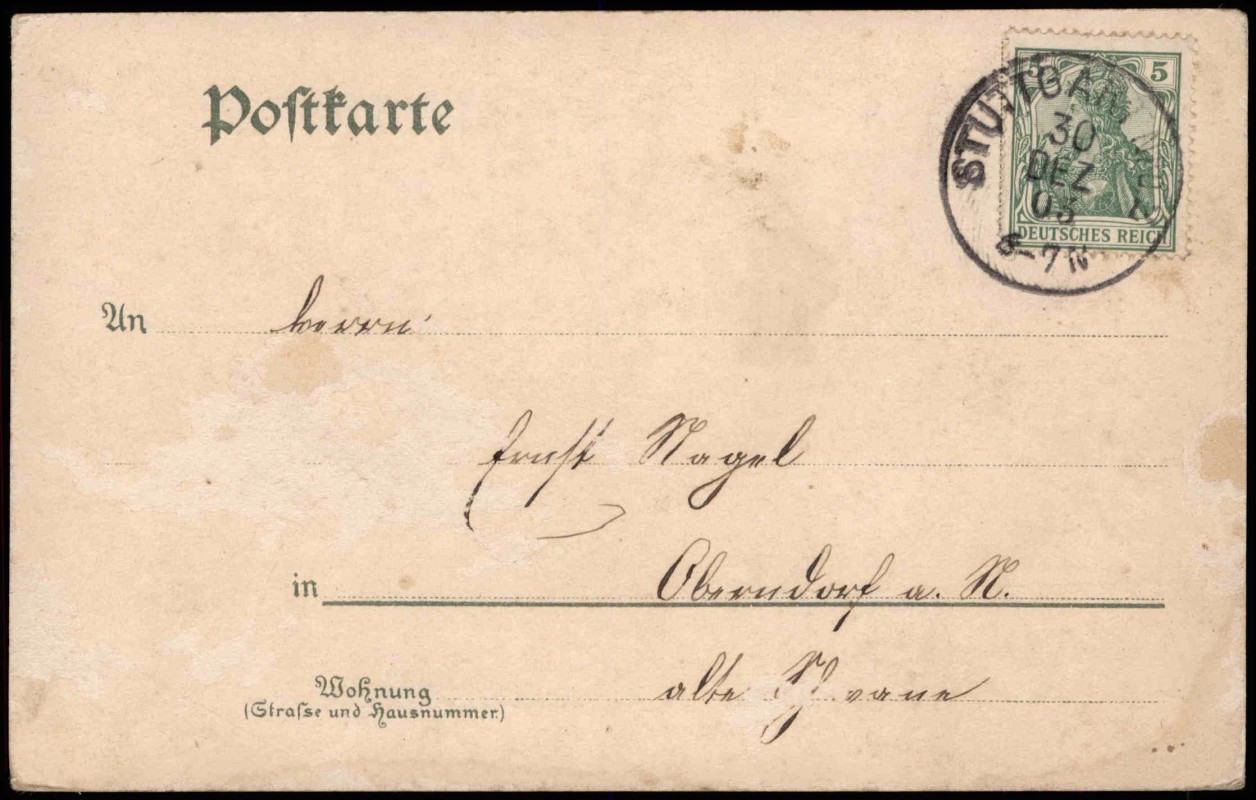 Postkarte
5 5
DEUTSCHES REICH
STUTTGART
30
DEZ
03
6-7N
An Herrn
Ernst Nagel
in Oberndorf a. N.
Wohnung alte
(Strafse und Hausnummer)